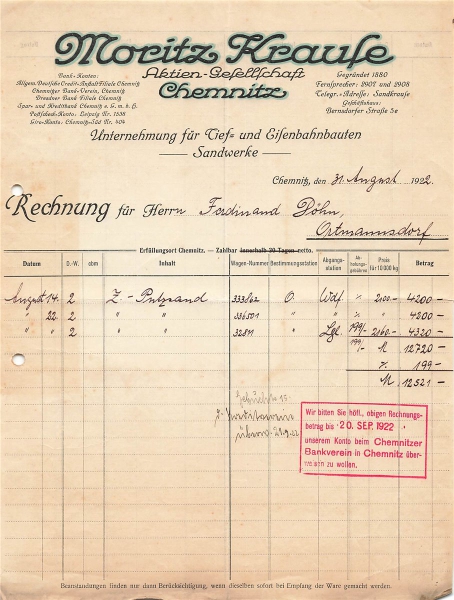 Moritz Krauſe
Aktien-Geſellſchaft
Chemnitz
Bank-Konten:
Allgem. Deutſche Credit-Anſtalt Filiale Chemnitz
Chemnitzer Bank-Verein, Chemnitz
Dresdner Bank Filiale Chemnitz
Spar- und Kreditbank Chemnitz e. G. m. b. H.
Poſtſcheck-Konto: Leipzig Nr. 1538
Giro-Konto: Chemnitz-Süd Nr. 404
Gegründet 1880
Fernſprecher: 2907 und 2908
Telegr.-Adreſſe: Sandkrauſe
Geſchäftshaus:
Bernsdorfer Straße 5e
Unternehmung für Tief- und Eiſenbahnbauten
Sandwerke
Chemnitz, den 31. August 1922.
Rechnung für Herrn Ferdinand Höhn,
Ortmannsdorf
Erfüllungsort Chemnitz. – Zahlbar innerhalb 30 Tagen netto.
Datum O.-W. cbm Inhalt Wagen-Nummer Bestimmungsstation Abgangsstation Abholungsgebühren Preis für 10000 kg Betrag
August 14. 2 Z.-Putzsand 33362 O Wdf. 2100.– 4200–
" 22. 2 " " 336501 " " " 4200–
" " 2 " " 32811 " Lgl. 199/- 2160.– 4320–
199/- M 12720–
199–
M 12521–
Wir bitten Sie höfl., obigen Rechnungs-
betrag bis 20. SEP. 1922
unserem Konto beim Chemnitzer
Bankverein in Chemnitz über-
weisen zu wollen.
Beanstandungen finden nur dann Berücksichtigung, wenn dieselben sofort bei Empfang der Ware gemacht werden.